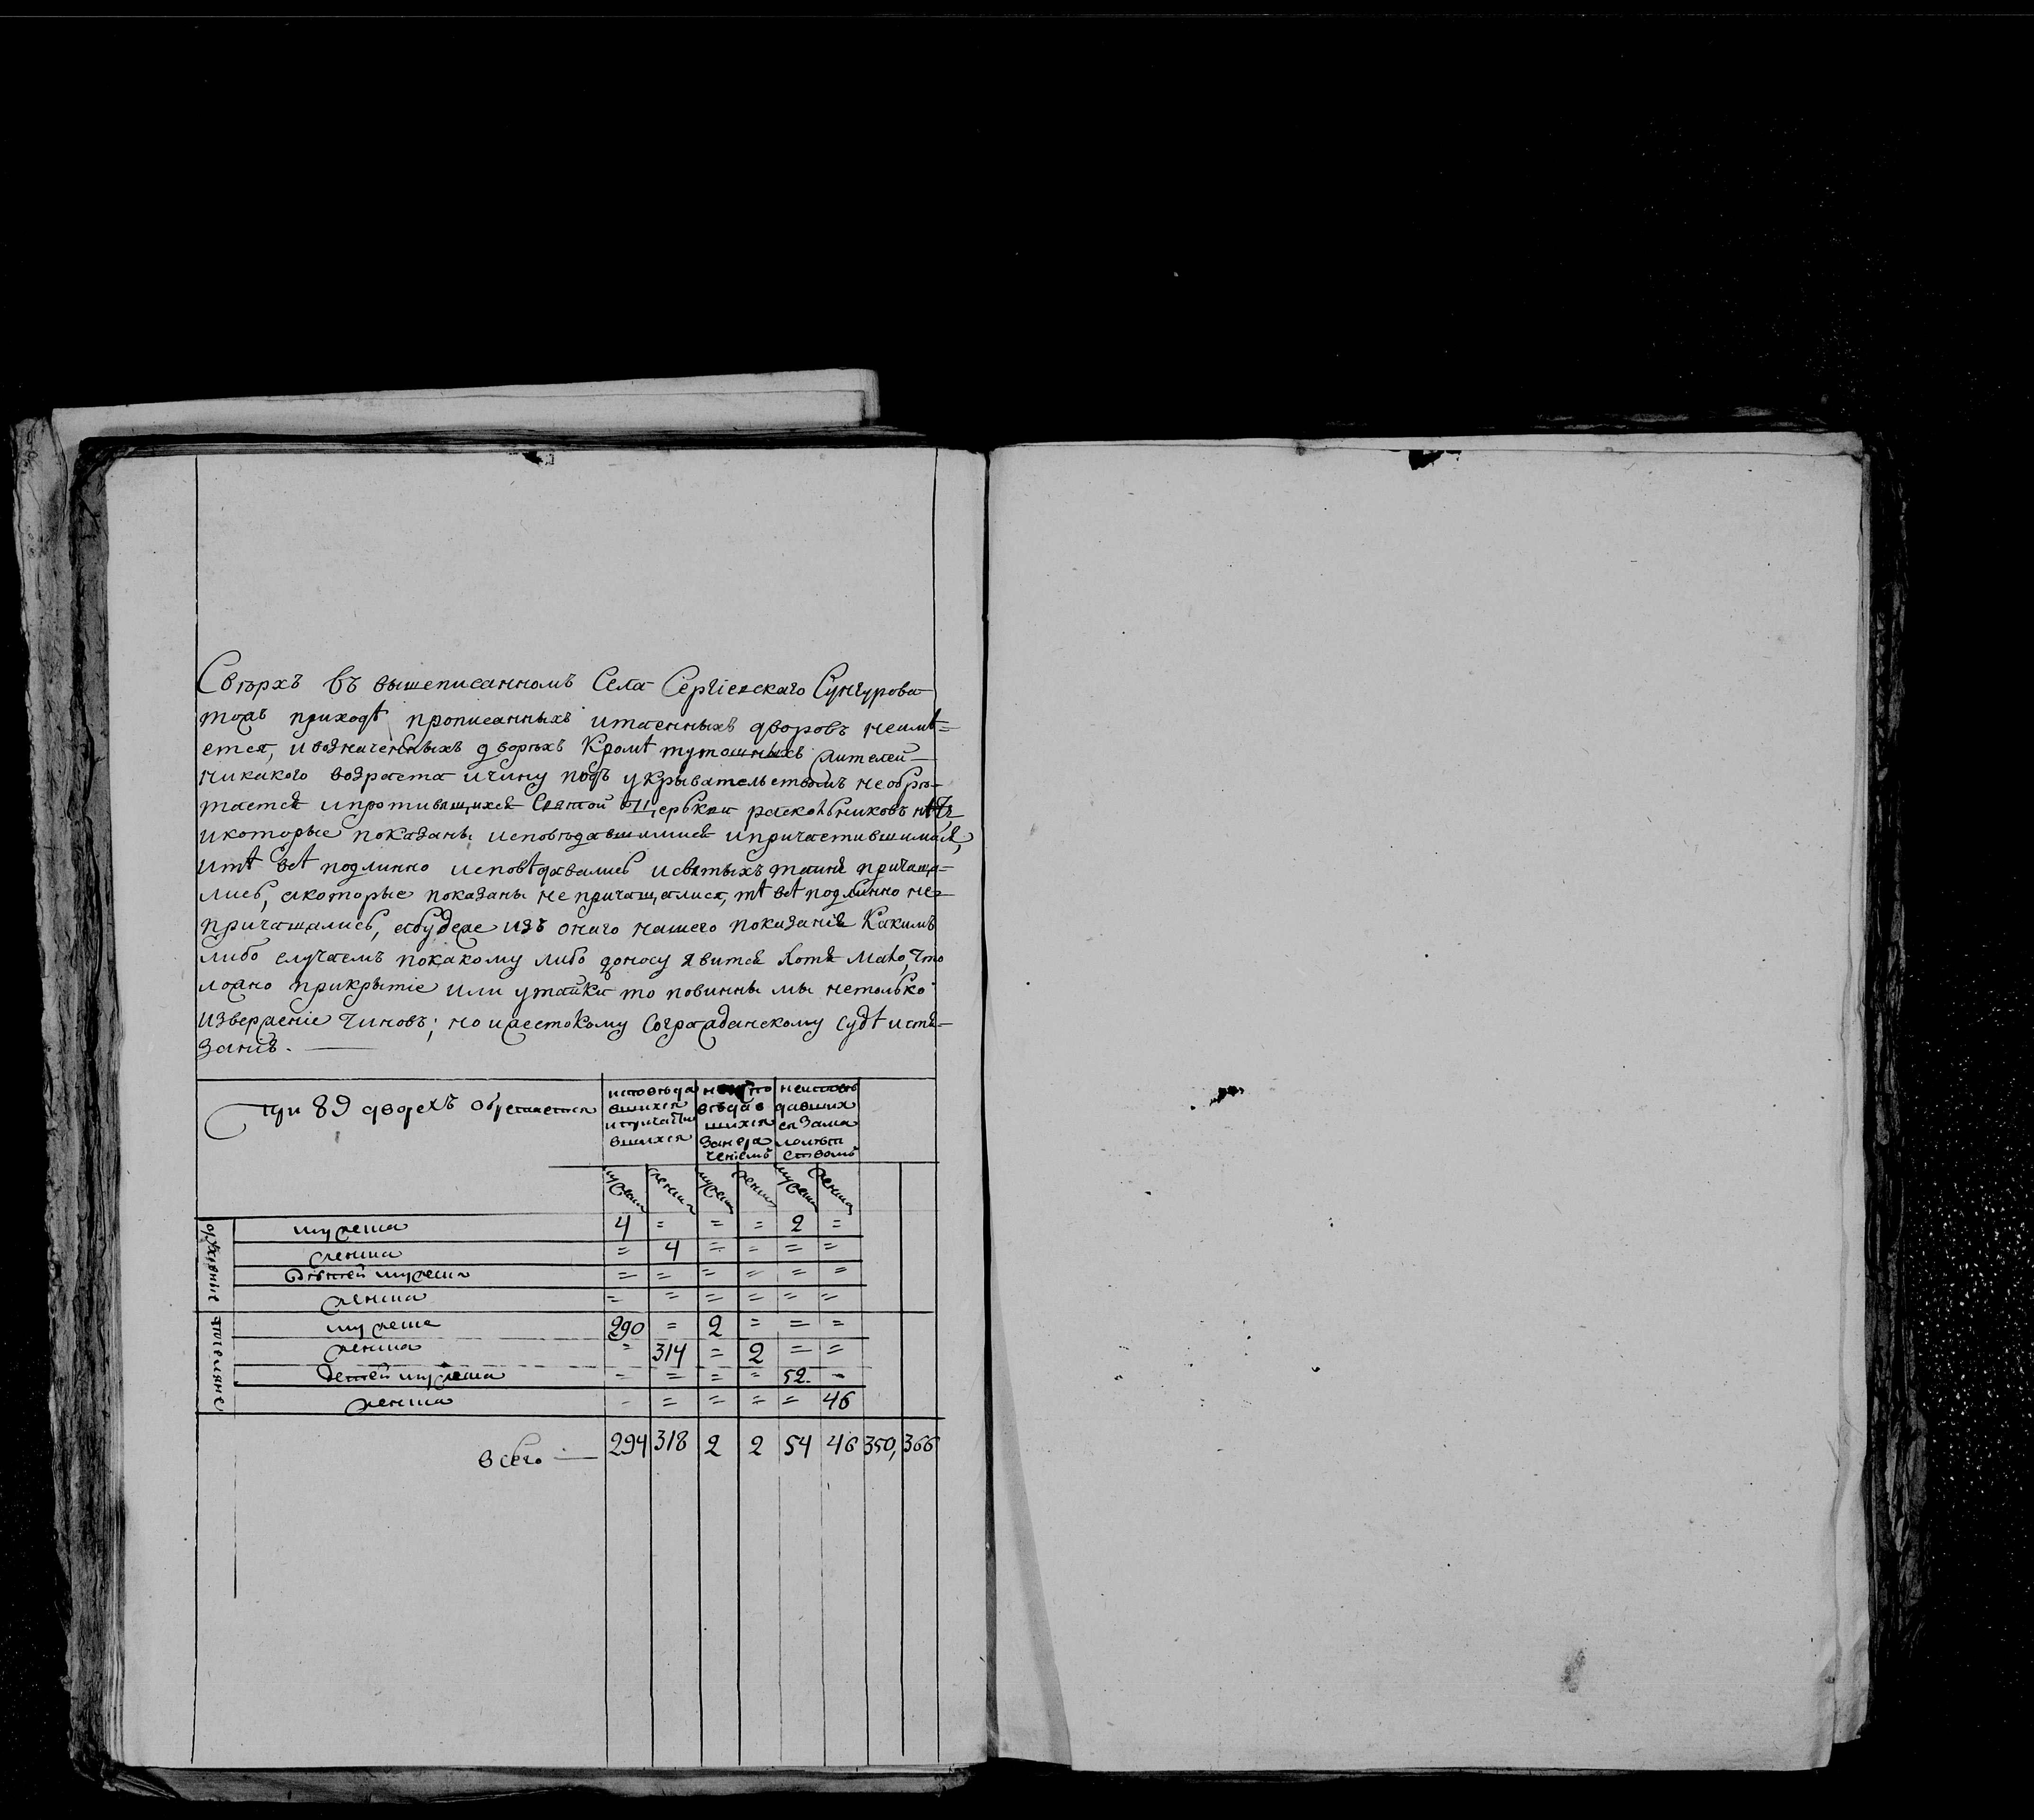 Свѣрхъ въ вышеписанномъ Села Сергіевскаго Сунгурова
тожъ приходѣ прописанныхъ итаенныхъ дворовъ неимѣ=
ется, и означенныхъ дворѣхъ Кромѣ тутошныхъ жителей
никакого возраста ичину подъ укрывательствомъ необрѣ-
таетсѧ ипротивящихсѧ Святой Церькви раскольниковъ нѣтъ
икоторые показаны исповѣдавшимисѧ ипричастившимисѧ,
итѣ всѣ подлинно исповѣдавались исвятыхъ таинъ причаща-
лись, акоторые показаны не причащалися, тѣ всѣ подлинно не=
причащались, абудеже изъ онаго нашего показанія Какимъ
либо случаемъ покакому либо доносу явится хотя мало, что
ложно прикрытіе или утайка то повинны мы нетолько
изверженіе Чиновъ; но ижестокому Согражданскому судѣ истя-
занію.
При 89 дворехъ обретается
исповѣда
вшихся
ипричасти
вшихся
вѣдав
шихся
Занера
ченіемъ
неисповѣ
давших
ся Зама
лолѣт
ствомъ
мужеска женска мужеска женска мужеска женска
духовные
мужеска 4 = = = 2 =
женска = 4 = = = =
Дѣтей мужеска = = = = = =
женска = = = = = =
мужеска 290 = 2 = = =
женска = 314 = 2 = =
Детей мужеска - = = = 52 -
женска - = = = = 46
всего — 294 318 2 2 54 46 350, 366